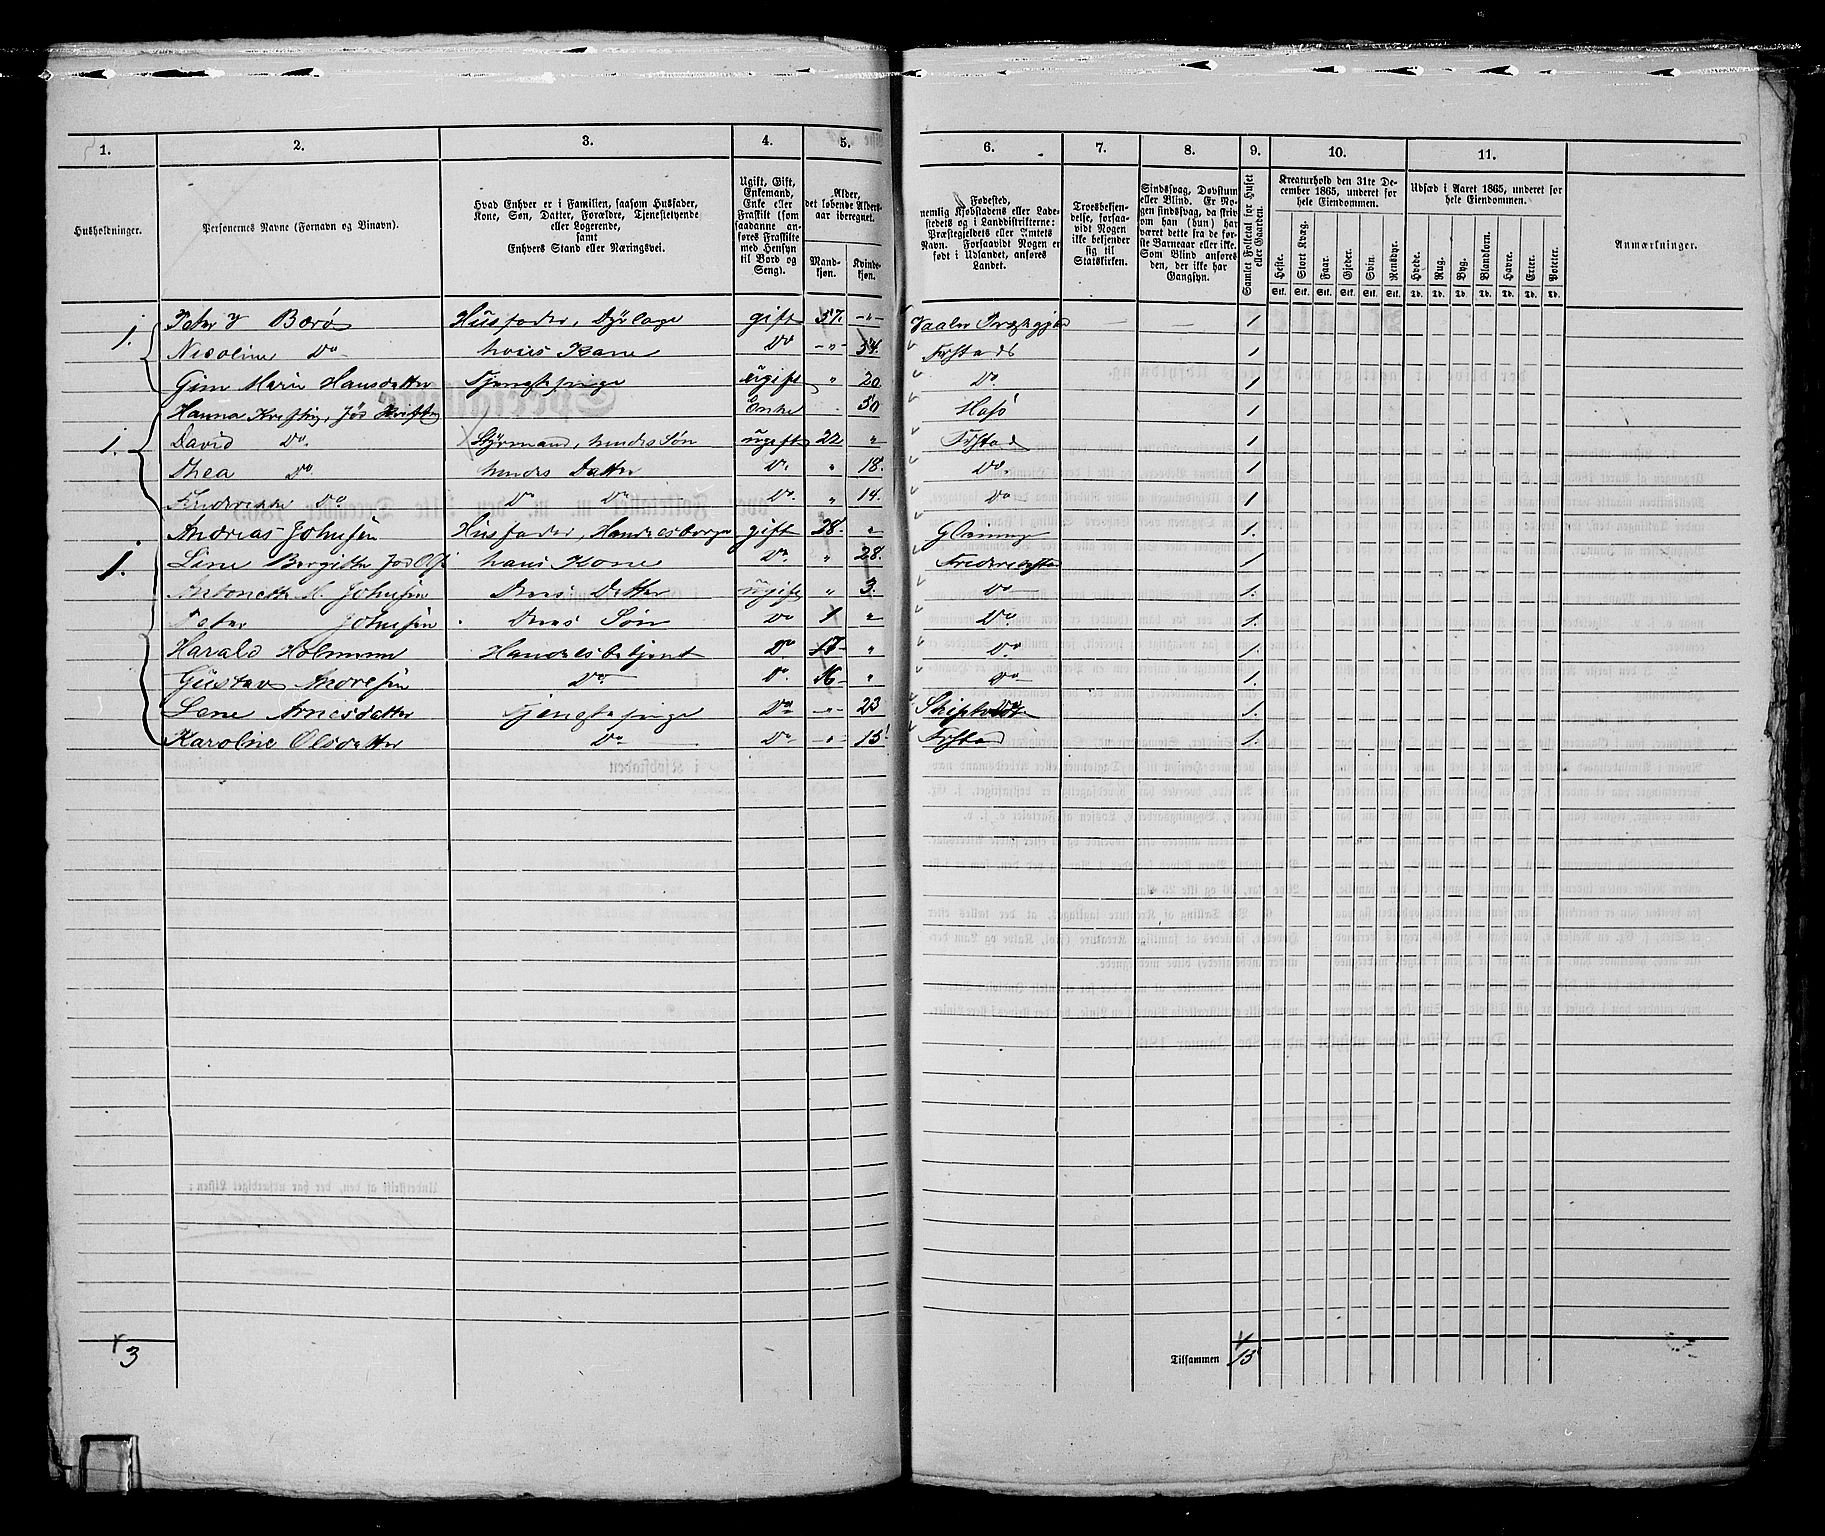 1. 2. 3. 4. 5. 6. 7. 8. 9. 10. 11.
Husholdninger.
Personernes Navne (Fornavn og Vinavn).
Hvad Enhver er i Familien, saasom Husfader,
Kone, Søn, Datter, Forældre, Tjenestetyende
eller Logerende,
samt
Enhvers Stand eller Næringsvei.
Ugift, Gift,
Enkemand,
Enke eller
Fraskilt (som
saadanne an-
føres Fraskilte
med Hensyn
til Bord og
Seng).
Alder,
det løbende Alders-
aar iberegnet.
Mand-
kjøn.
Kvinde-
kjøn.
Fødested,
nemlig Kjøbstadens eller Lade-
stedets og i Landdistrikterne:
Præstegjeldets eller Amtets
Navn. Forsaavidt Nogen er
født i Udlandet, anføres
Landet.
Troesbekjen-
delse, forsaa-
vidt Nogen
ikke bekjender
sig til
Statskirken.
Sindssvag, Døvstum
eller Blind. Er No-
gen sindssvag, da skriv
om han (hun) har
været dette fra de før-
ste Barneaar eller ikke.
Som Blind anføres
den, der ikke har
Gangsyn.
Samlet Folketal for Huset
eller Gaarden.
Kreaturhold den 31te De-
cember 1865, underet for
hele Eiendommen.
Heste. Stort Kvæg. Faar. Gjeder. Svin. Rensdyr.
Stk. Stk. Stk. Stk. Stk. Stk.
Udsæd i Aaret 1865, underet for
hele Eiendommen.
Hvede. Rug. Byg. Blandkorn. Havre. Erter. Poteter.
Td. Td. Td. Td. Td. Td. Td.
Anmærkninger.
1. Peter Borø Husfader, Dyrlæge gift 57. -"- Vaaler 1
Nicoline Do hans Kone Do -"- 54. Frstad 1
Marie Hansdatter Tjenestepige ugift " 20 Do 1
Hanna Enke 50 1
1. David Do. Styrmand, hendes Søn ugift 22 " Frstad 1
Thea Do hendes Datter Do. " 18. Do. 1
Do Do Do Do. " 14. Do 1
1. Andreas Johnsen Husfader, gift 28. " Glemmig 1.
Line Bergitte hans Kone Do. " 28. Frederikstad 1
Antonette M. Johnsen Deres Datter ugift " 3. Do 1.
Peter Johnsen Deres Søn Do 1 " Do. 1.
Harald Holmmen Handelsbetjent Do 17 " Do 1.
Gustav Andresen Do. Do. 16 " Do 1.
Lene Arnesdatter Tjenestepige Do -"- 23 Skiptvedt 1.
Karoline Olsdatter Do Do -"- 15 Frstad 1.
3
Tilsammen 15